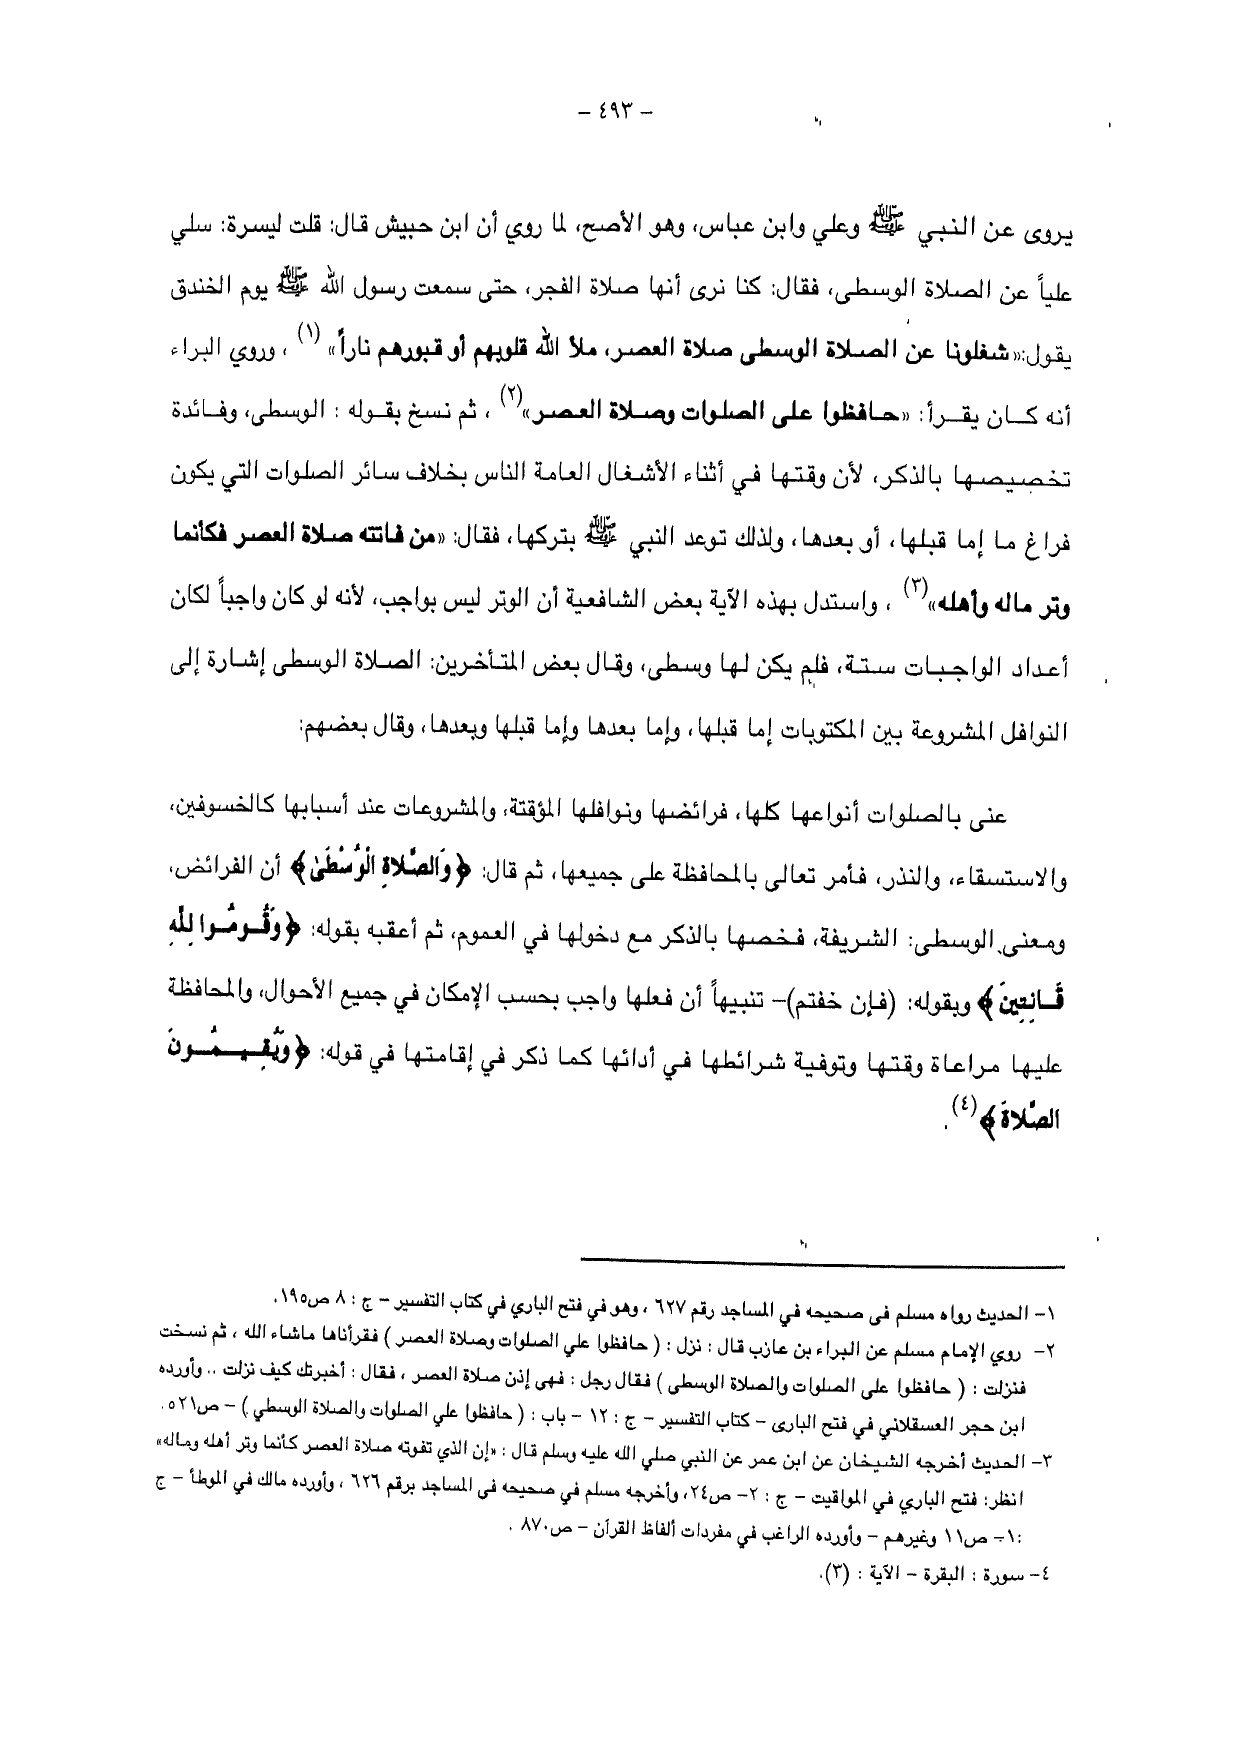 - ٤٩٣ -
يروى عن النبي ﷺ وعلي وابن عباس، وهو الأصح، لما روي أن ابن حبيش قال: قلت ليسرة: سلي
علياً عن الصلاة الوسطى، فقال: كنا نرى أنها صلاة الفجر، حتى سمعت رسول الله ﷺ يوم الخندق
يقول:«شغلونا عن الصلاة الوسطى صلاة العصر، ملأ الله قلوبهم أو قبورهم ناراً» (١) ، وروي البراء
أنه كان يقرأ: «حافظوا على الصلوات وصلاة العصر»(٢) ، ثم نسخ بقوله : الوسطى، وفائدة
تخصيصها بالذكر، لأن وقتها في أثناء الأشغال العامة الناس بخلاف سائر الصلوات التي يكون
فراغ ما إما قبلها، أو بعدها، ولذلك توعد النبي ﷺ بتركها، فقال: «من فاتته صلاة العصر فكأنما
وتر ماله وأهله»(٣) ، واستدل بهذه الآية بعض الشافعية أن الوتر ليس بواجب، لأنه لو كان واجباً لكان
أعداد الواجبات ستة، فلم يكن لها وسطى، وقال بعض المتأخرين: الصلاة الوسطى إشارة إلى
النوافل المشروعة بين المكتوبات إما قبلها، وإما بعدها وإما قبلها وبعدها، وقال بعضهم:
عنى بالصلوات أنواعها كلها، فرائضها ونوافلها المؤقتة، والمشروعات عند أسبابها كالخسوفين،
والاستسقاء، والنذر، فأمر تعالى بالمحافظة على جميعها، ثم قال: ﴿وَالصَّلاةِ الْوُسْطَىٰ﴾ أن الفرائض،
ومعنى الوسطى: الشريفة، فخصها بالذكر مع دخولها في العموم، ثم أعقبه بقوله: ﴿وَقُومُوا لِلَّهِ
قَانِتِينَ﴾ وبقوله: (فإن خفتم)- تنبيهاً أن فعلها واجب بحسب الإمكان في جميع الأحوال، والمحافظة
عليها مراعاة وقتها وتوفية شرائطها في أدائها كما ذكر في إقامتها في قوله: ﴿وَيُقِيمُونَ
الصَّلاةَ﴾(٤).
١- الحديث رواه مسلم فى صحيحه في المساجد رقم ٦٢٧ ، وهو في فتح الباري في كتاب التفسير - ج : ٨ ص١٩٥.
٢- روي الإمام مسلم عن البراء بن عازب قال : نزل : ( حافظوا علي الصلوات وصلاة العصر ) فقرأناها ماشاء الله ، ثم نسخت
فنزلت : ( حافظوا على الصلوات والصلاة الوسطى ) فقال رجل : فهى إذن صلاة العصر ، فقال : أخبرتك كيف نزلت .. وأورده
ابن حجر العسقلاني في فتح البارى - كتاب التفسير - ج : ١٢ - باب : ( حافظوا علي الصلوات والصلاة الوسطي ) - ص٥٢١.
٣- الحديث أخرجه الشيخان عن ابن عمر عن النبي صلي الله عليه وسلم قال : «إن الذي تفوته صلاة العصر كأنما وتر أهله وماله»
انظر: فتح الباري في المواقيت - ج : ٢- ص٢٤، وأخرجه مسلم في صحيحه فى المساجد برقم ٦٢٦ ، وأورده مالك في الموطأ - ج
:١- ص١١ وغيرهم - وأورده الراغب في مفردات ألفاظ القرآن - ص٨٧٠ .
٤- سورة : البقرة - الآية : (٣).